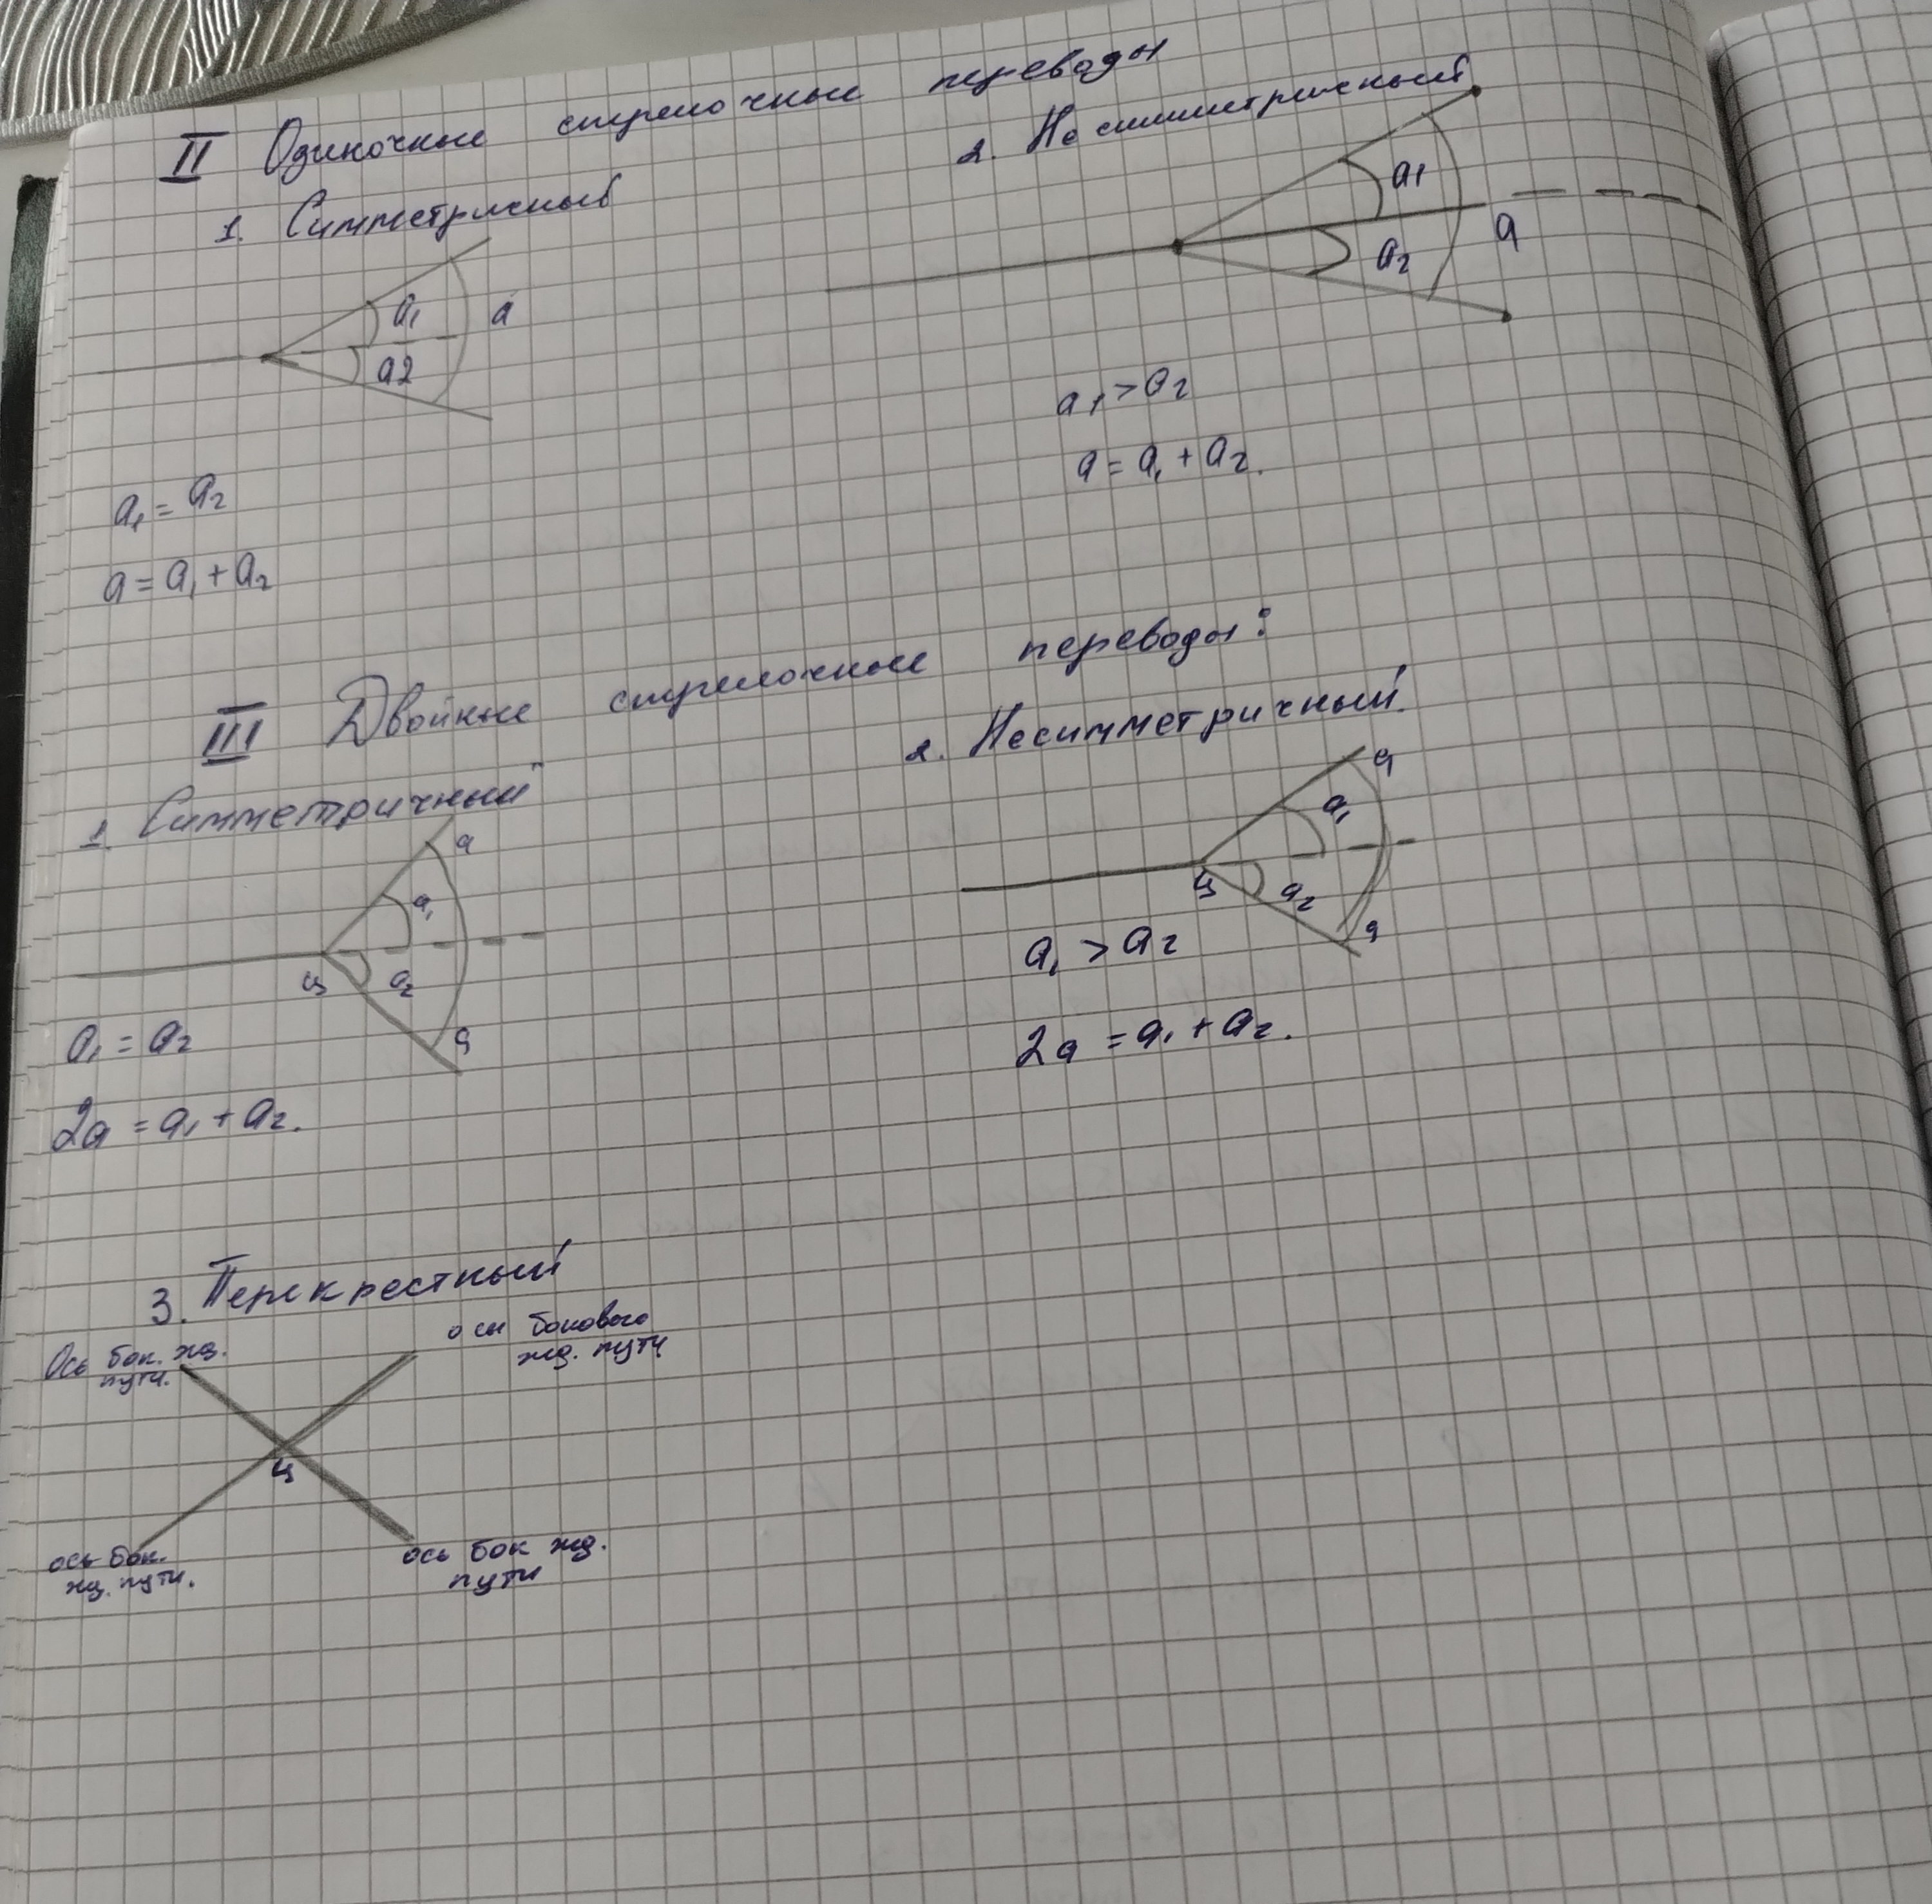 II Одиночные стрелочные переводы
1. Симметричный
a1
a2
a
a1 = a2
a = a1 + a2
2. Несимметричный
a1
a2
a
a1 > a2
a = a1 + a2.
III Двойные стрелочные переводы:
1. Симметричный
a
a1
ц
a2
a
a1 = a2
2a = a1 + a2.
2. Несимметричный.
a
a1
ц
a2
a
a1 > a2
2a = a1 + a2.
3. Перекрестный
Ось бок. жд.
пути.
оси бокового
жд. пути
ц
ось бок.
жд. пути.
ось бок жд.
пути